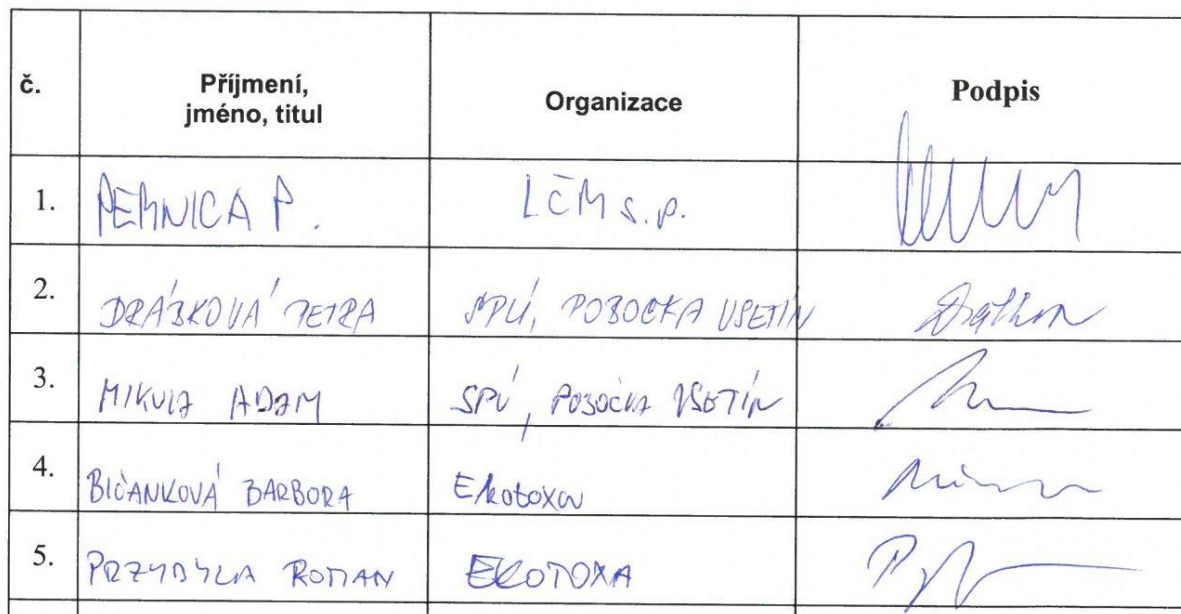 č. Příjmení, jméno, titul Organizace Podpis
1. PERNICA P. LČR s.p.
2. DRÁBKOVÁ PETRA SPÚ, POBOČKA VSETÍN
3. MIKULA ADAM SPÚ, POBOČKA VSETÍN
4. BIČANKOVÁ BARBORA Ekotoxa
5. PRZYBYLA ROMAN EKOTOXA